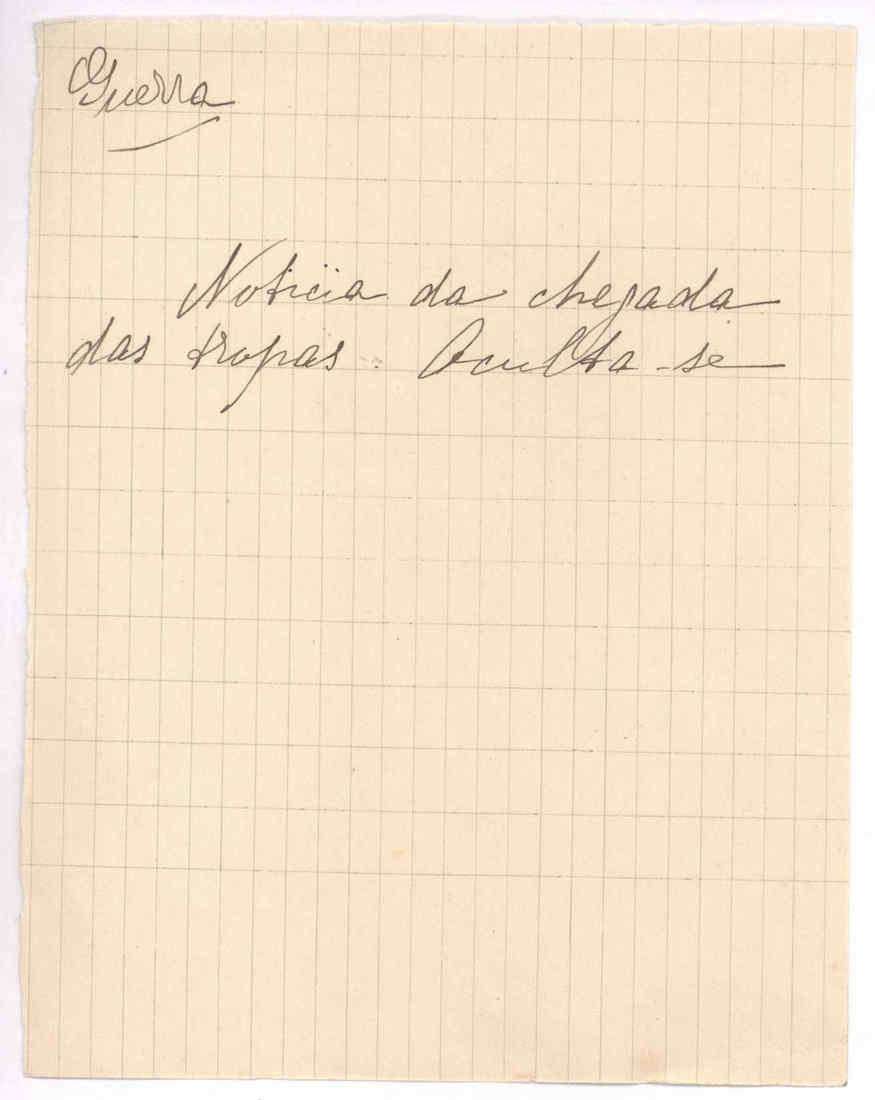 Guerra
Noticia da chegada
das tropas. Oculta-se